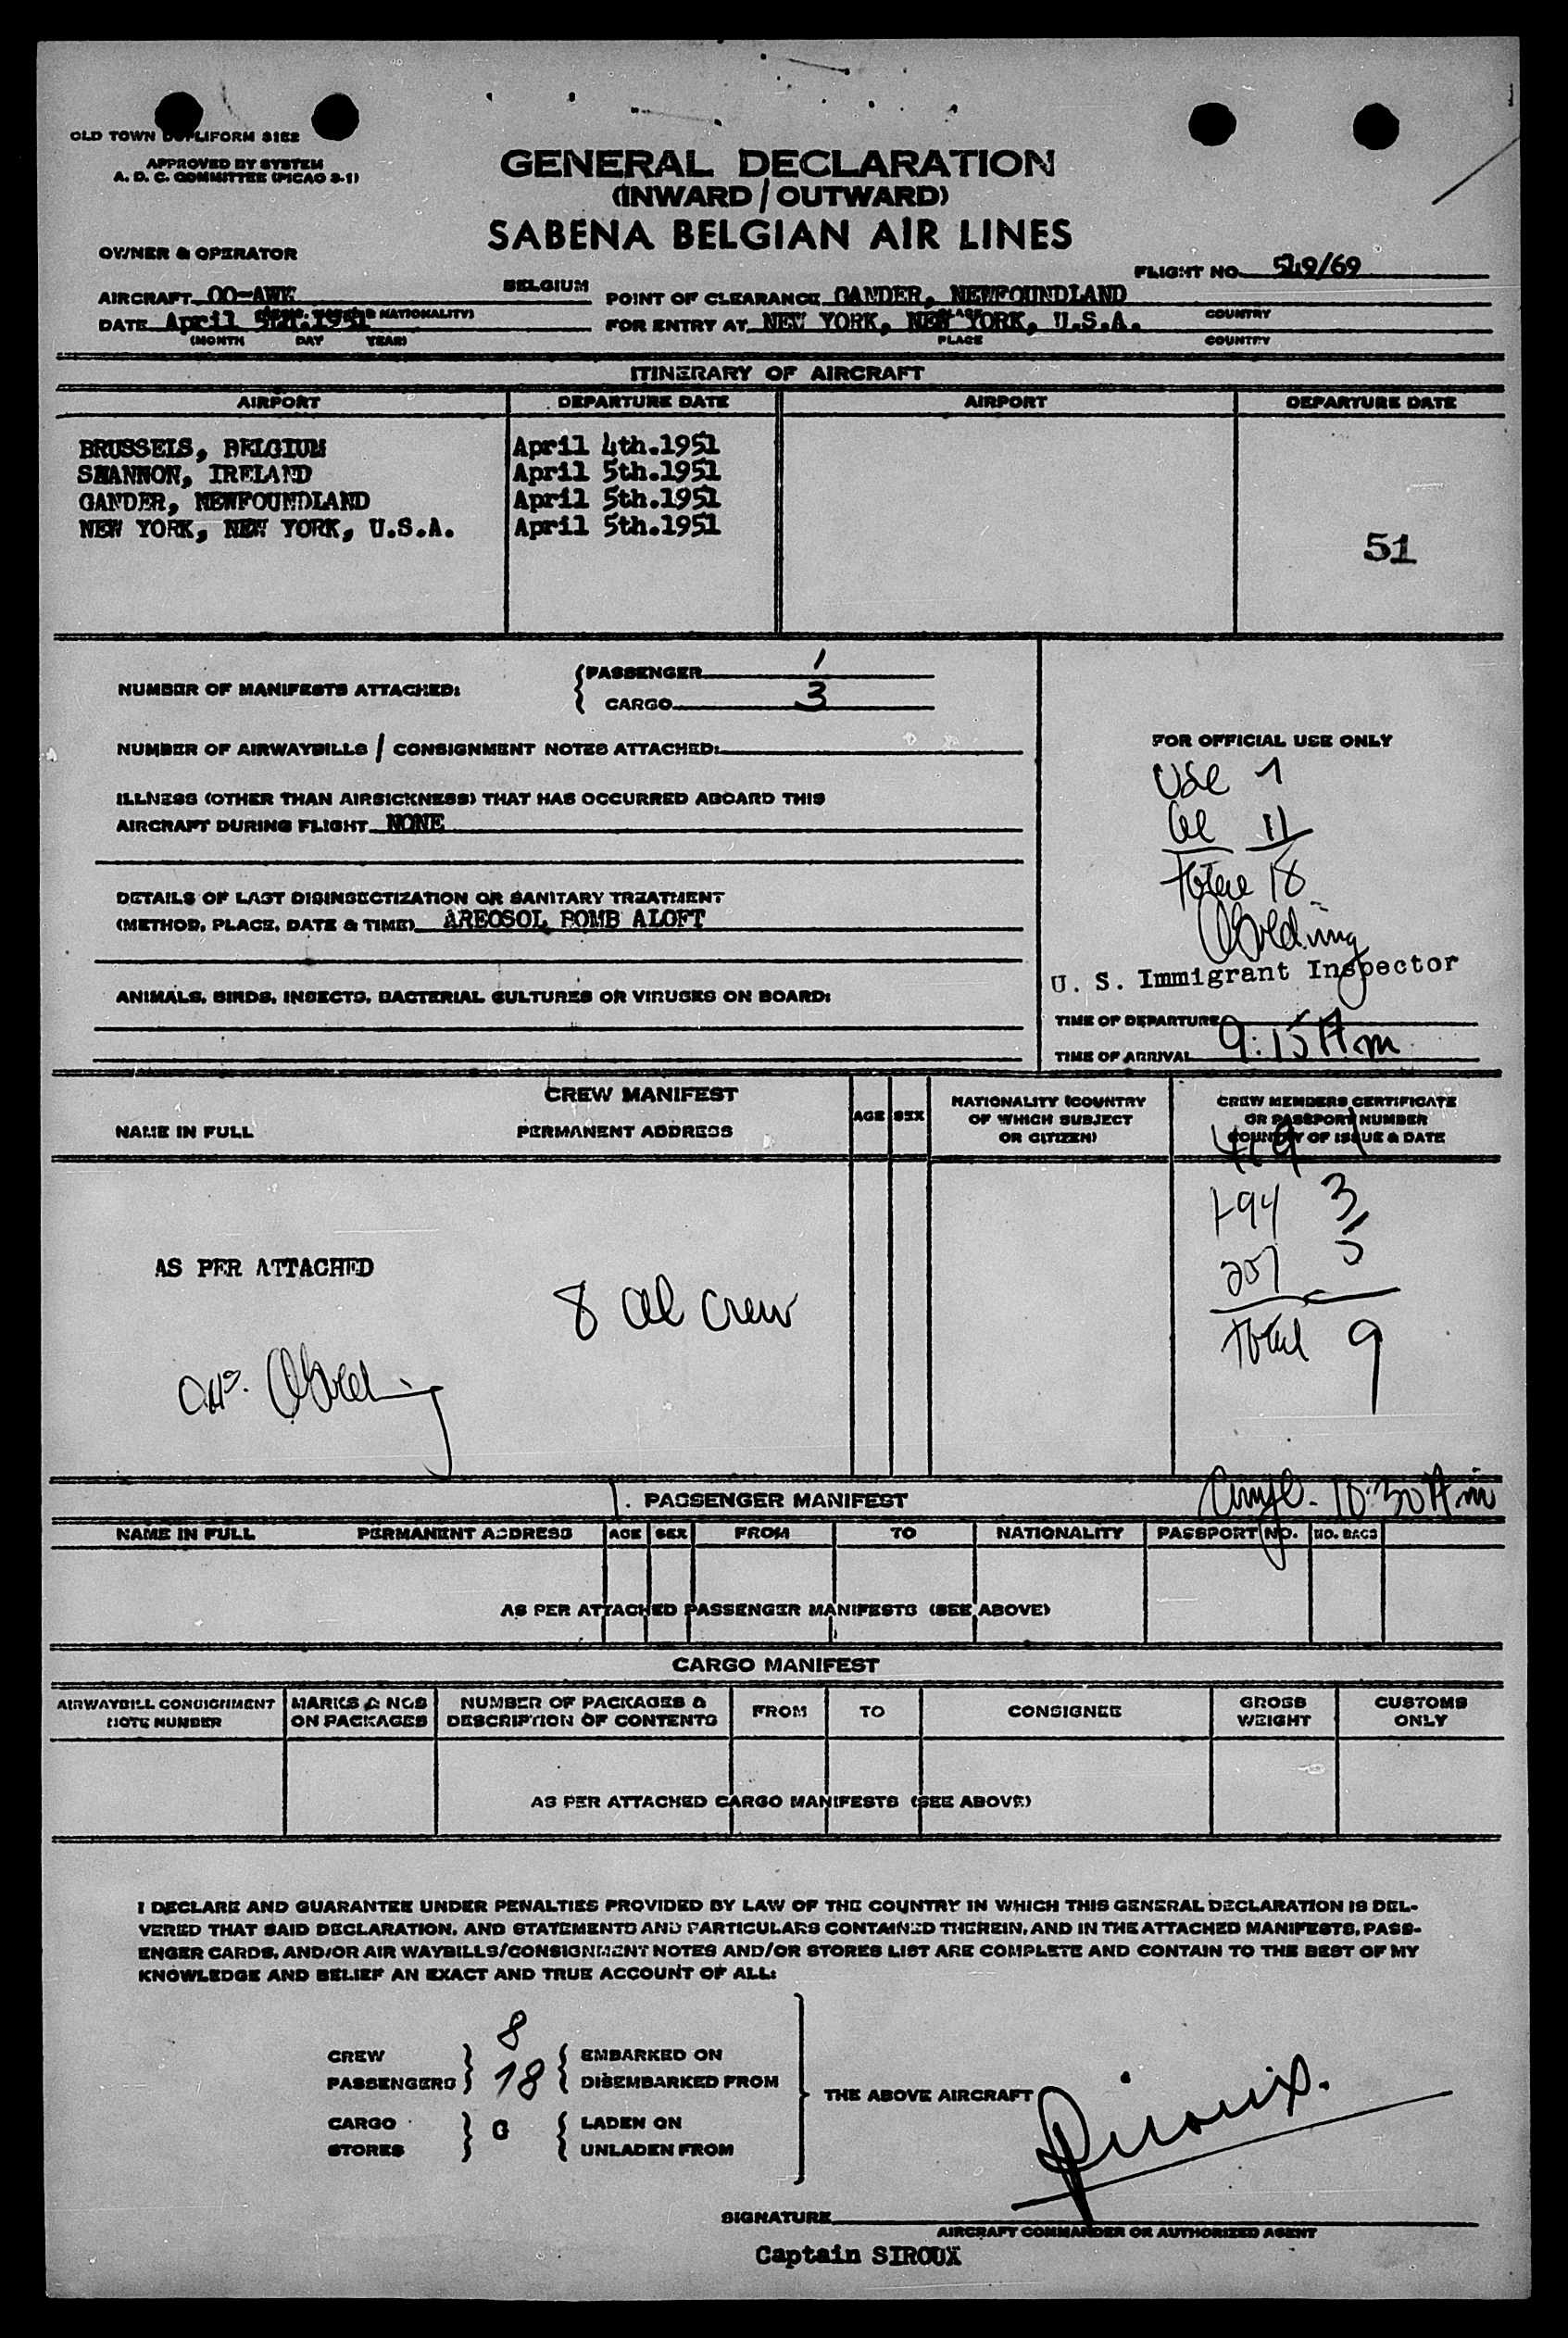 OLD TOWN DUPLIFORM 3152
APPROVED BY SYSTEM
A. D. C. COMMITTEE (PICAO 3-1)
GENERAL DECLARATION
(INWARD / OUTWARD)
SABENA BELGIAN AIR LINES
OWNER & OPERATOR
FLIGHT NO. 549/69
AIRCRAFT OO-AWK BELGIUM POINT OF CLEARANCE GANDER, NEWFOUNDLAND
NATIONALITY) PLACE COUNTRY
DATE April 5th.1951 FOR ENTRY AT NEW YORK, NEW YORK, U.S.A.
(MONTH DAY YEAR) PLACE COUNTRY
ITINERARY OF AIRCRAFT
AIRPORT DEPARTURE DATE AIRPORT DEPARTURE DATE
BRUSSELS, BELGIUM April 4th.1951
SHANNON, IRELAND April 5th.1951
GANDER, NEWFOUNDLAND April 5th.1951
NEW YORK, NEW YORK, U.S.A. April 5th.1951
51
NUMBER OF MANIFESTS ATTACHED: { PASSENGER 1
CARGO 3
NUMBER OF AIRWAYBILLS / CONSIGNMENT NOTES ATTACHED:
ILLNESS (OTHER THAN AIRSICKNESS) THAT HAS OCCURRED ABOARD THIS
AIRCRAFT DURING FLIGHT NONE
DETAILS OF LAST DISINSECTIZATION OR SANITARY TREATMENT
(METHOD, PLACE, DATE & TIME) AREOSOL BOMB ALOFT
ANIMALS, BIRDS, INSECTS, BACTERIAL CULTURES OR VIRUSES ON BOARD:
FOR OFFICIAL USE ONLY
11
Total 18
U. S. Immigrant Inspector
TIME OF DEPARTURE
TIME OF ARRIVAL 9:15 Am
CREW MANIFEST
NAME IN FULL PERMANENT ADDRESS AGE SEX NATIONALITY (COUNTRY OF WHICH SUBJECT OR CITIZEN) CREW MEMBERS CERTIFICATE OR PASSPORT NUMBER COUNTRY OF ISSUE & DATE
I-94 3
257 5
Total 9
AS PER ATTACHED
8 al Crew
10:30 Am
PASSENGER MANIFEST
NAME IN FULL PERMANENT ADDRESS AGE SEX FROM TO NATIONALITY PASSPORT NO. NO. BAGS
AS PER ATTACHED PASSENGER MANIFESTS (SEE ABOVE)
CARGO MANIFEST
AIRWAYBILL CONSIGNMENT NOTE NUMBER MARKS & NOS ON PACKAGES NUMBER OF PACKAGES & DESCRIPTION OF CONTENTS FROM TO CONSIGNEE GROSS WEIGHT CUSTOMS ONLY
AS PER ATTACHED CARGO MANIFESTS (SEE ABOVE)
I DECLARE AND GUARANTEE UNDER PENALTIES PROVIDED BY LAW OF THE COUNTRY IN WHICH THIS GENERAL DECLARATION IS DEL-
VERED THAT SAID DECLARATION, AND STATEMENTS AND PARTICULARS CONTAINED THEREIN, AND IN THE ATTACHED MANIFESTS, PASS-
ENGER CARDS, AND/OR AIR WAYBILLS/CONSIGNMENT NOTES AND/OR STORES LIST ARE COMPLETE AND CONTAIN TO THE BEST OF MY
KNOWLEDGE AND BELIEF AN EXACT AND TRUE ACCOUNT OF ALL:
CREW 8 EMBARKED ON
PASSENGERS 18 DISEMBARKED FROM
THE ABOVE AIRCRAFT
CARGO LADEN ON
STORES UNLADEN FROM
SIGNATURE
AIRCRAFT COMMANDER OR AUTHORIZED AGENT
Captain SIROUX